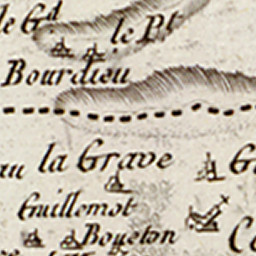 le G.d
le P.t
Bourdieu
au la Grave G
Guillemot
Boyeton